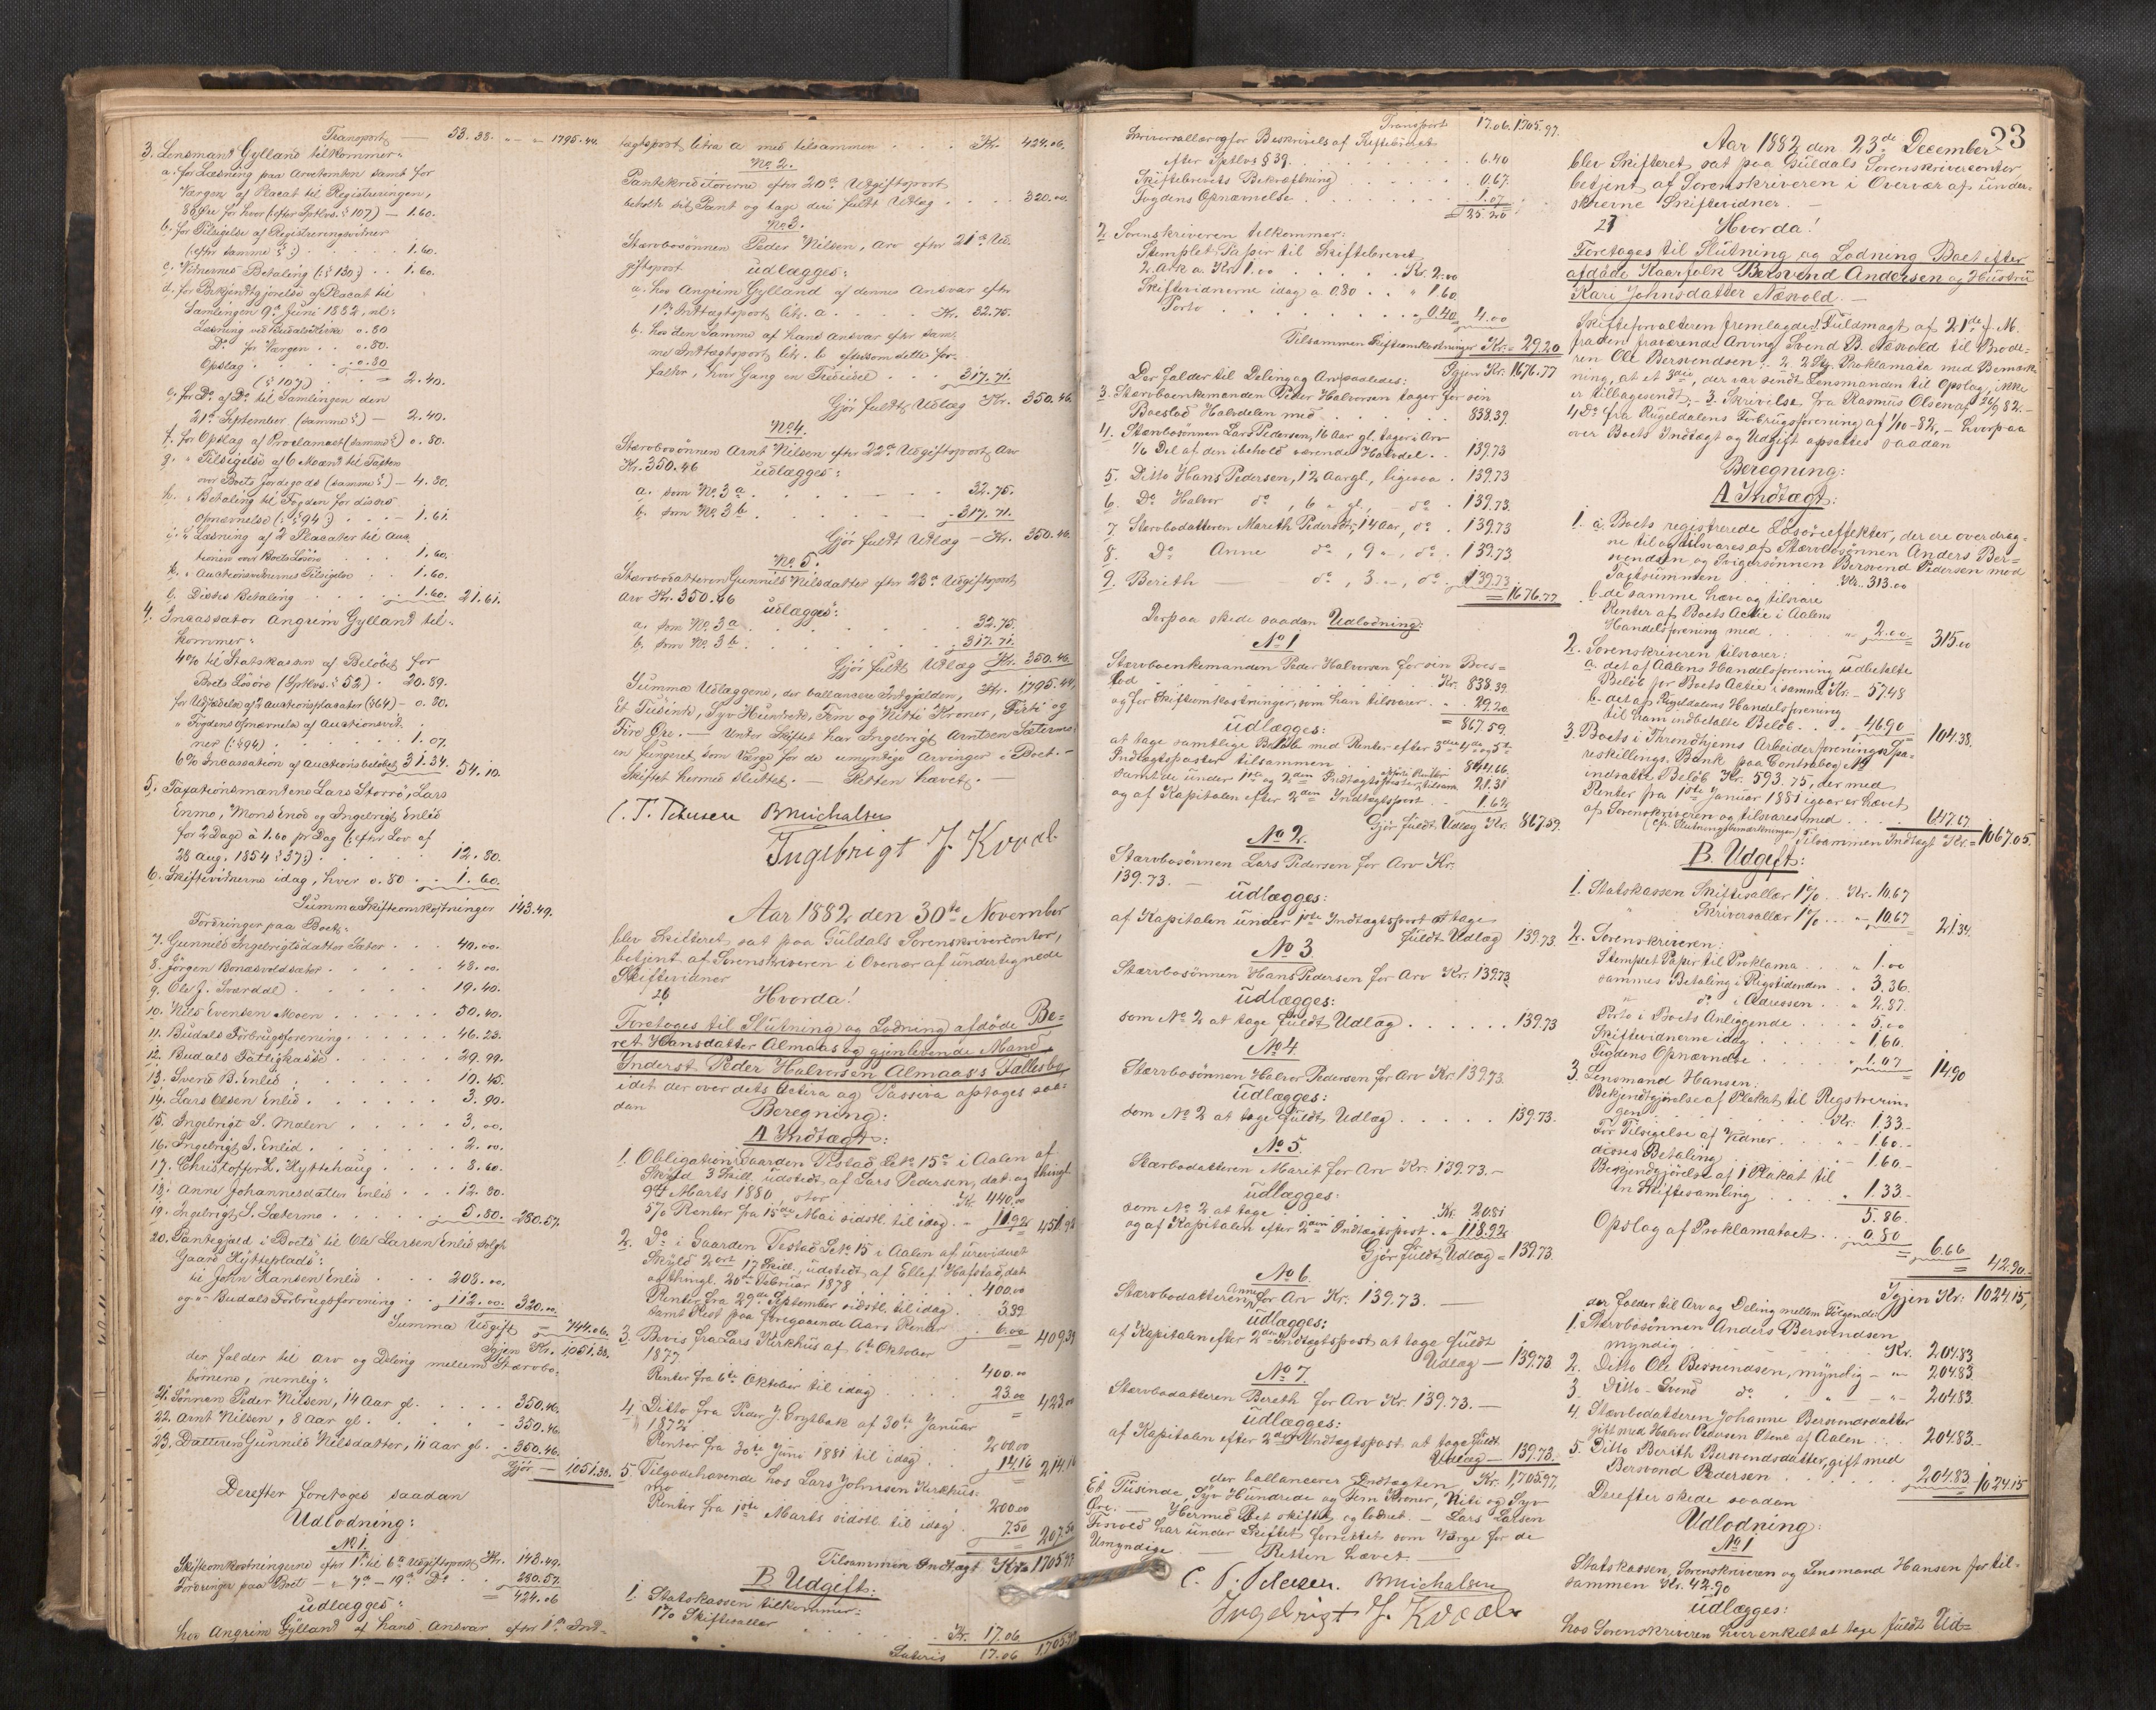 Transport — 53.38. " — " 1795.44.
3. Lensmand Gylland tilkommer:
a. for Læsning paa Arvetomten samt for
Værgen af Placat til Registreringen,
88 Øre for hver (efter Sptlvs. § 107) — 1.60.
b. for Tilsigelse af Registreringsvidner
(efter samme §) . . . . 1.60.
c. Vidnernes Betaling (: § 130 :) . . 1.60.
d. for Bekjendtgjørelse af Placat til
Samlingen 9de Juni 1882, nl:
Læsning ved Budals Kirke 0.80
Do for Værgen . . 0.80.
Opslag . . . . 0.80
(§ 107) . . . = 2.40.
e. for Do af Do til Samlingen den
21de September (samme §) — 2.40.
f. for Opslag af Proclamaet (samme §) 0.80.
g. " Tilsigelse af 6 Mænd til Taxten
over Boets Jordegods (samme §) — 4.80.
h. " Betaling til Fogden for disses
Opnævnelse (: § 94 :) . . . — 1.61.
i. " Læsning af 2 Placater til Auc-
tionen over Boets Løsøre . . . 1.60.
k. " Auctionsvidnernes Tilsigelse . . 1.60.
l. Disses Betaling . . . . . 1.60. 21.61.
4. Incassator Angrim Gylland til-
kommer:
4% til Statskassen af Beløbet for
Boets Løsøre (Sptlvs. § 52) . 20.89.
for Udstedelse af 2 Auctionsplacater (§ 64) — 0.80.
" Fogdens Opnævnelse af Auctionsvid-
ner (: § 94 :) . . . . 1.07.
6% Incassation af Auctionsbeløbet 31.34. 54.10.
5. Taxationsmændene Lars Storrø, Lars
Enmo, Mons Enod og Ingebrigt Enlid
for 2 Dage à 1.60 pr Dag (: efter Lov af
28 Aug. 1854 § 37 :) . . . . . 12.80.
6. Skiftevidnerne idag, hver 0.80 . . 1.60.
Summa Skifteomkostninger 143.49.
Fordringer paa Boet:
7. Gunnild Ingebrigtsdatter Sæter . . . 40.00.
8. Jörgen Bonasvoldsæter . . . . 48.00.
9. Ole J. Sværddal . . . . 19.40.
10. Nils Evensen Moen . . . . . 30.40.
11. Budals Forbrugsforening . . . . . 46.23.
12. Budals Fattigkasse . . . . . 29.99.
13. Svend B. Enlid . . . . . 10.45.
14. Lars Olsen Enlid . . . . . 3.90.
15. Ingebrigt S. Mælen . . . . 3.00.
16. Ingebrigt J. Enlid . . . . . 2.00.
17. Christoffer L. Hyttehaug . . . . 8.60.
18. Anne Johannesdatter Enlid . . . 12.80.
19. Ingebrigt S. Sætermo . . . . . 5.80. 280.57.
20. Pantegjæld i Boets til Ole Larsen Enlid solgte
Gaard Hytteplads:
til John Hansen Enlid . . . 208.00.
og " Budals Forbrugsforening . . 112.00. 320.00.
Summa Udgift = 744.06.
Igjen Kr. 1051.38.
der falder til Arv og Deling mellem Stærvbo-
börnene, nemlig:
21. Sönnen Peder Nilsen, 14 Aar gl. . . . . 350.46.
22. Arnt Nilsen, 8 Aar gl. . . . . . 350.46.
23. Datteren Gunnild Nilsdatter, 11 aar gl. . . 350.46.
Gjör — 1051.38.
Derefter foretoges saadan
Udlodning:
No 1.
Skifteomkostningerne efter 1ste til 6te Udgiftspost Kr. 143.49.
Fordringer paa Boet — " 7de — 19de Do . . . 280.57.
udlægges: = 424.06
hos Angrim Gylland af hans Ansvar efter 1ste Ind-
tægtspost litra a med tilsammen . . . Kr. 424.06.
No 2.
Pantekreditorerne efter 20de Udgiftspost
beholde sit Pant og tage deri fuldt Udlæg . . . . 320.00.
No 3.
Stærvbosönnen Peder Nilsen, Arv efter 21de Ud-
giftspost udlægges:
a. hos Angrim Gylland af dennes Ansvar efter
1ste Indtægtspost litr. a . . . . . Kr. 32.75.
b. hos den Samme af hans Ansvar efter sam-
me Indtægtspost litr. b eftersom dette for-
falder, hver Gang en Trediedel . . . 317.71.
Gjör fuldt Udlæg Kr. 350.46.
No 4.
Stærvbosönnen Arnt Nilsen efter 22de Udgiftspost Arv
Kr. 350.46 udlægges:
a. som No 3 a . . . . — . . . 32.75.
b. som No 3 b . . . . . . . . 317.71.
Gjör fuldt Udlæg — Kr. 350.46.
No 5.
Stærvbodatteren Gunnild Nilsdatter efter 23de Udgiftspost
Arv Kr. 350.46 udlægges:
a. som No 3 a . . . . . . . . 32.75.
b. som No 3 b . . . . . . . . 317.71.
Gjör fuldt Udlæg Kr. 350.46
Summa Udlæggene, der ballancere Indgjælden, Kr. 1795.44,
Et Tusinde, Syv Hundrede, Fem og Nitti Kroner, Firti og
Fire Øre. — Under Skiftet har Ingebrigt Arntsen Sætermo
en fungeret som Værge for de umyndige Arvinger i Boet. —
Skiftet hermed sluttet. — Retten hævet. —
C. T. Petersen BMichalsen
Ingebrigt J. Kvaal
Aar 1882 den 30te November
blev Skifteret sat paa Guldals Sorenskrivercontor,
betjent af Sorenskriveren i Overvær af undertegnede
Skiftevidner
26 Hvorda!
Foretoges til Slutning og Lodning afdøde Be-
ret Hansdatter Almaas og gjenlevende Mand
Inderst Peder Halvorsen Almaas's Fællesbo
idet der over dets Activa og Passiva optoges saa-
dan Beregning:
A Indtægt:
1. Obligation i Gaarden Vestad Lt No 15a i Aalen af
Skyld 3 Skill. udstedt af Lars Pedersen, dat. og thingl.
9de Marts 1880, stor . . . . . Kr. 440.00
5% Renter fra 15de Mai sidstl. til idag . — 11.92 451.92
2. Do i Gaarden Vestad Lt No 15 i Aalen af urevideret
Skyld 2 ort 17 Skill., udstedt af Ellef Hafstad, dat.
og thingl. 20de Februar 1878 . . . . . 400.00
Renter fra 29de September sidstl. til idag . . 3.39
samt Rest paa foregaaende Aars Renter . . 6.00 409.39
3. Bevis fra Lars Kirkhus af 6te Oktober
1877 . . . . . . . . 400.00
Renter fra 6te Oktober til idag . . . . 23.00 423.00
4. Ditto fra Peder J. Grytbak af 30te Januar
1872 . . . . . . . . 200.00
Renter fra 30te Juni 1881 til idag . . . 14.16 214.16
5. Tilgodehavende hos Lars Johnsen Kirkhus-
mo . . . . . . . . 200.00
Renter fra 1ste Marts sidstl. til idag . . 7.50 207.50
Tilsammen Indtægt Kr. 1705.97
B. Udgift:
1. Statskassen tilkommer:
1% Skiftesallær . . . . . Kr. 17.06
Lateris 17.06 1705.97
Transport 17.06. 1705.97.
Skriversallær og for Beskrivelse af Skiftebrevet
efter Sptlvs § 39 . . . . . . . 6.40
Skiftebrevets Bekræftning . . . . . 0.67.
Fogdens Opnævnelse . . . . . . 1.07
= 25.20
2. Sorenskriveren tilkommer:
Stemplet Papir til Skiftebrevet
2 Ark a. Kr. 1.00 . . . . . Kr. 2.00
Skiftevidnerne idag a 0.80 . . " 1.60
Porto . . . . . . . " 0.40 4.00
Tilsammen Skifteomkostninger Kr. = 29.20
Igjen Kr. 1676.77
Der falder til Deling og Arv saaledes:
3. Stærvboenkemanden Peder Halvorsen tager for sin
Boeslod Halvdelen med . . . . . . 838.39.
4. Stærvbosönnen Lars Pedersen, 16 Aar gl. tager i Arv
1/6 Del af den ibehold værende Halvdel . . 139.73
5. Ditto Hans Pedersen, 12 Aar gl., ligesaa . 139.73
6. Do Halvor do, 6 " gl., — do . 139.73.
7. Stærvbodatteren Mareth Pedersdtr, 14 Aar, do . 139.73
8. Do Anne do, 9 " —, do . 139.73.
9. Berith — do, 3 . —, do . 139.73
= 1676.77
Derpaa skede saadan Udlodning:
No 1
Stærvboenkemanden Peder Halvorsen for sin Boes-
lod . . . . . . . . Kr. 838.39.
og for Skifteomkostninger, som han tilsvarer . . . 29.20
udlægges: = 867.59.
at tage samtlige Beløb med Renter efter 3die 4de og 5te
Indtægtsposter tilsammen . . . . . 844.66
samt de under 1ste og 2den Indtægtsposter opførte Renter tilsam. 21.31
og af Kapitalen efter 2den Indtægtspost . . 1.62
Gjör fuldt Udlæg Kr. 867.59.
No 2.
Stærvbosönnen Lars Pedersen for Arv Kr.
139.73. —
udlægges:
af Kapitalen under 1ste Indtægtspost at tage
fuldt Udlæg 139.73.
No 3
Stærvbosönnen Hans Pedersen for Arv Kr. 139.73
udlægges:
som No 2 at tage fuldt Udlæg . . . . . . 139.73
No 4.
Stærvbosönnen Halvor Pedersen for Arv Kr. 139.73.
udlægges:
som No 2 at tage fuldt Udlæg . . . . . 139.73.
No 5.
Stærvbodatteren Marit for Arv Kr. 139.73. —
udlægges:
som No 2 at tage . . . . . Kr. 20.81
og af Kapitalen efter 2den Indtægtspost . " 118.92
Gjør fuldt Udlæg = 139.73
No 6.
Stærvbodatteren Anne for Arv Kr. 139.73. —
udlægges:
af Kapitalen efter 2den Indtægtspost at tage fuldt
Udlæg — 139.73
No 7.
Stærvbodatteren Bereth for Arv Kr. 139.73. —
udlægges:
af Kapitalen efter 2den Indtægtspost at tage fuldt
Udlæg — 139.73.
der ballancerer Indtægten Kr. 1,705.97,
Et Tusinde, Syv Hundrede og Fem Kroner, Niti og Syv
Øre. — Hermed Boet skiftet og lodnet. — Lars Larsen
Törvold har under Skiftet forrettet som Værge for de
Umyndige. — Retten hævet. —
C. T. Petersen. BMichalsen
Ingebrigt J. Kvaal
23
Aar 1882 den 23de December
blev Skifteret sat paa Guldals Sorenskrivercontor,
betjent af Sorenskriveren i Overvær af under-
skrevne Skiftevidner. —
27 Hvorda!
Foretoges til Slutning og Lodning Boet efter
afdøde Kaarfolk Bersvend Andersen og Hustru
Kari Johnsdatter Næsvold. —
Skifteforvalteren fremlagde 1. Fuldmagt af 21de f. M.
fra den fraværende Arving Svend B. Næsvold til Brode-
ren Ole Bersvendsen. 2. 2 Stk. Proklamata med Bemærk-
ning, at et 3die, der var sendt Lensmanden til Opslag, ikke
er tilbagesendt, — 3. Skrivelse fra Rasmus Olsen af 26/9 82. —
4. Do fra Rugeldalens Forbrugsforening af 1/10 — 82, — hvorpaa
over Boets Indtægt og Udgift opsattes saadan
Beregning:
A Indtægt:
1. a. Boets registrerede Løsøreeffekter, der ere overdrag-
ne til og tilsvares af Stærvbosönnen Anders Ber-
svendsen og Svigersönnen Bersvend Pedersen med
Taxtsummen . . . . . Kr. 313.00
b. de samme hæve og tilsvare
Renter af Boets Actie i Aalens
Handelsforening med . . . . " 2.00 315.00
2. Sorenskriveren tilsvarer:
a. det af Aalens Handelsforening udbetalte
Beløb for Boets Actie i samme Kr. — 57.48
b. det af Rugeldalens Handelsforening
til ham indbetalte Beløb . . . 46.90 104.38.
3. Boets i Throndhjems Arbeiderforenings Spa-
reskillings Bank paa Contrabog No
indsatte Beløb Kr. 593.75, der med
Renter fra 1ste Januar 1881 igaar er hævet
af Sorenskriveren og tilsvares med . . . 647.67
(cfr. Slutningsbemærkningen) Tilsammen Indtægt Kr. = 1067.05.
B. Udgift:
1. Statskassen Skiftesallær 1% . . Kr. 10.67
" Skriversallær 1% . . . " 10.67 21.34.
2. Sorenskriveren:
Stemplet Papir til Proklama . . . " 1.00
sammes Betaling i Rigstidenden . . " 3.36.
" do i Adressen . . " 2.87.
Porto i Boets Anliggende . . . . " 5.00
Skiftevidnerne idag . . . . . " 1.60.
Fogdens Opnævnelse . . . . . " 1.07 14.90
3. Lensmand Hansen:
Bekjendtgjørelse af Plakat til Registrerin-
gen . . . . . . . Kr. 1.33. —
For Tilsigelse af Vidner . . . . — 1.60. —
disses Betaling . . . . . — 1.60. —
Bekjendtgjørelse af 1 Plakat til
en Skiftesamling . . . . . " 1.33 —
5.86.
Opslag af Proklamataet . . . 0.80
= 6.66 = 42.90. —
Igjen Kr. 1024.15,
der falder til Arv og Deling mellem Følgende:
1. Stærvbosönnen Anders Bersvendsen
myndig . . . . . . . Kr. 204.83
2. Ditto Ole Bersvendsen, myndig — " — 204.83
3. Ditto — Svend do . " — " — 204.83
4. Stærvbodatteren Johanne Bersvendsdatter
gift med Halvor Pedersen af Aalen . . 204.83. —
5. Ditto Berith Bersvendsdatter, gift med
Bersvend Pedersen . . . . . . 204.83 — 1024.15
Derefter skede saadan
Udlodning:
No 1
Statskassen, Sorenskriveren og Lensmand Hansen for til-
sammen Kr. 42.90
udlægges:
hos Sorenskriveren hver enkelt at tage fuldt Ud-